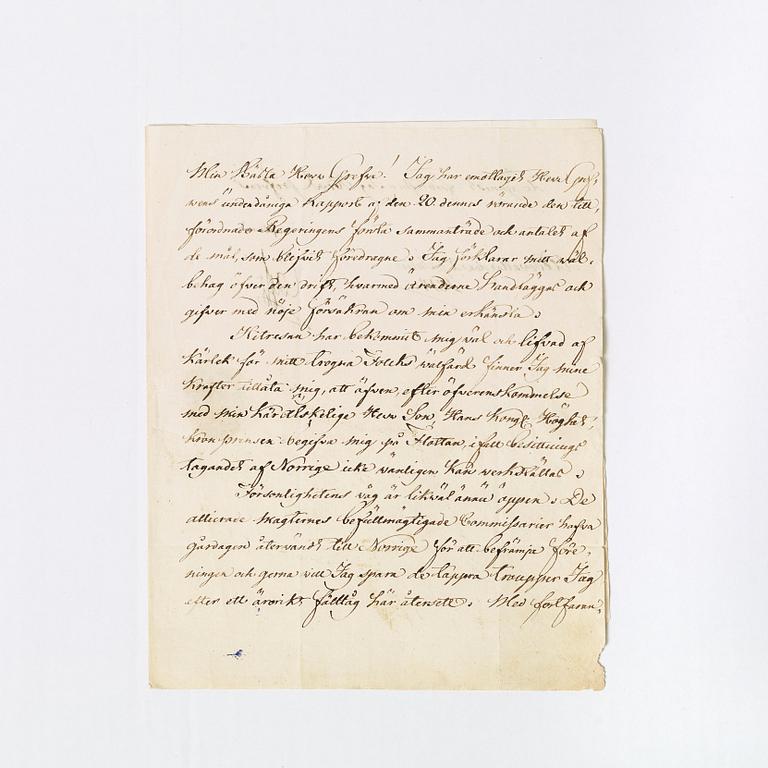 Min Bästa Herr Grefve! Jag har emottagit Herr Gref-
wens underdåniga Rapport af den 20 dennes rörande den till,
förordnade Regeringens första sammanträde och antalet af
de mål, som blifvit föredragne. Jag förklarar mitt wäl-
behag öfver den drift, hvarmed ärenderne handläggas och
gifver med nöje försäkran om min erkänsla.
Hitresan har bekommit mig wäl och lifvad af
kärlek för mitt trogna Folcks wälfärd finner Jag mine
krafter tillåta mig, att äfven, efter öfverenskommelse
med min kärälskelige Herr Son, Hans Kongl. Höghet
Kron Prinsen begifva mig på Flottan, ifall besittnings
tagandet af Norrige icke wänligen kan werkställas.
Försonlighetens wäg är likwäl ännu öppen. De
allierade Magternes befullmägtigade Commissarier hafva
gårdagen återvändt till Norrige för att befrämja före-
ningen och gerna vill Jag spara de tappra trupper Jag
efter ett ärorikt fälttåg här återsett. Med